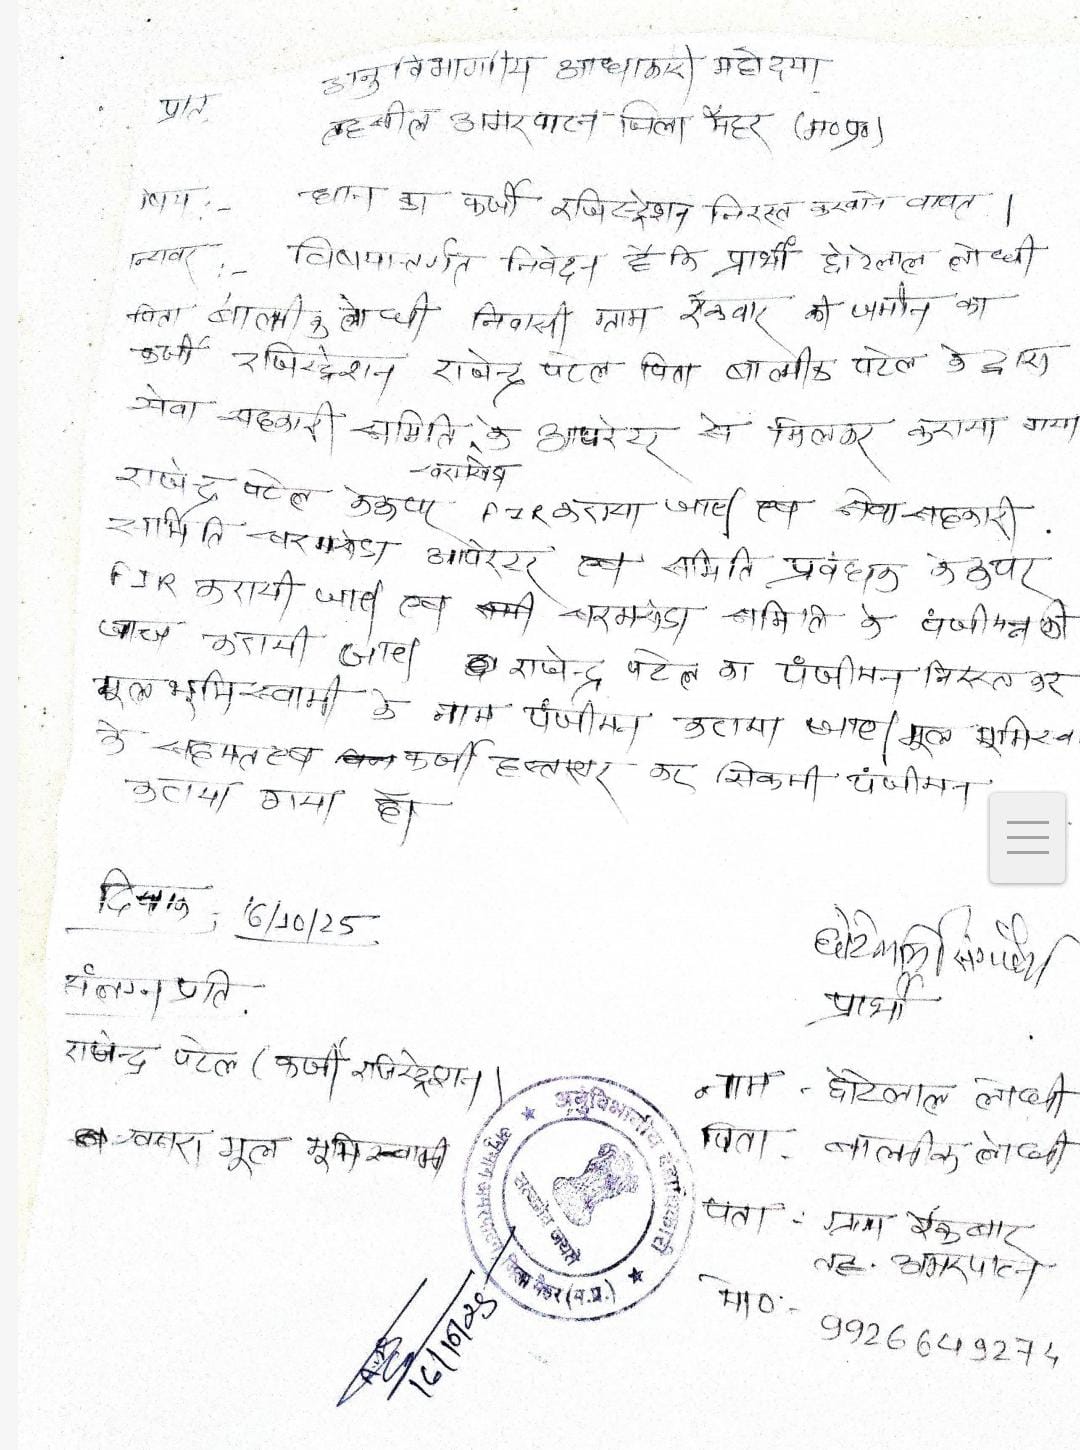 अनुविभागीय अधिकारी महोदया
प्रति,
तहसील अमरपाटन जिला मैहर (म०प्र०)
विषय :- धान का फर्जी रजिस्ट्रेशन निरस्त करवाने वावत ।
न्यवर :- विषयान्तर्गत निवेदन है कि प्रार्थी छोटेलाल लोध्धी
पिता बाल्मीक लोध्धी निवासी ग्राम रैकवार की जमीन का
फर्जी रजिस्ट्रेशन राजेन्द्र पटेल पिता बाल्मीक पटेल के द्वारा
सेवा सहकारी समिति के आपरेटर से मिलकर कराया गया
राजेन्द्र पटेल के ऊपर FIR कराया जाए एवं सेवा सहकारी
समिति आपरेटर एवं समिति प्रवंधक के ऊपर
FIR करायी जाए एवं समिति के पंजीयन की
जाच करायी जाए राजेन्द्र पटेल का पंजीयन निरस्त कर
मूल भूमिस्वामी के नाम पंजीयन कराया जाए। मूल भूमिस्वा
के सहमत एवं फर्जी हस्ताक्षर कर सिकमी पंजीयन
कराया गया है।
दिनांक : 16/10/25
छोटेलाल
प्रार्थी
संलग्न प्रति.
राजेन्द्र पटेल (फर्जी रजिस्ट्रेशन)
खसरा मूल भूमिस्वामी
नाम - छोटेलाल लोध्धी
पिता - बाल्मीक लोध्धी
पता :- ग्राम रैकवार
तह. अमरपाटन
मो० :- 9926649274
अनुविभागीय दण्डाधिकारी
सत्यमेव जयते
जिला मैहर (म.प्र.)
16/10/25